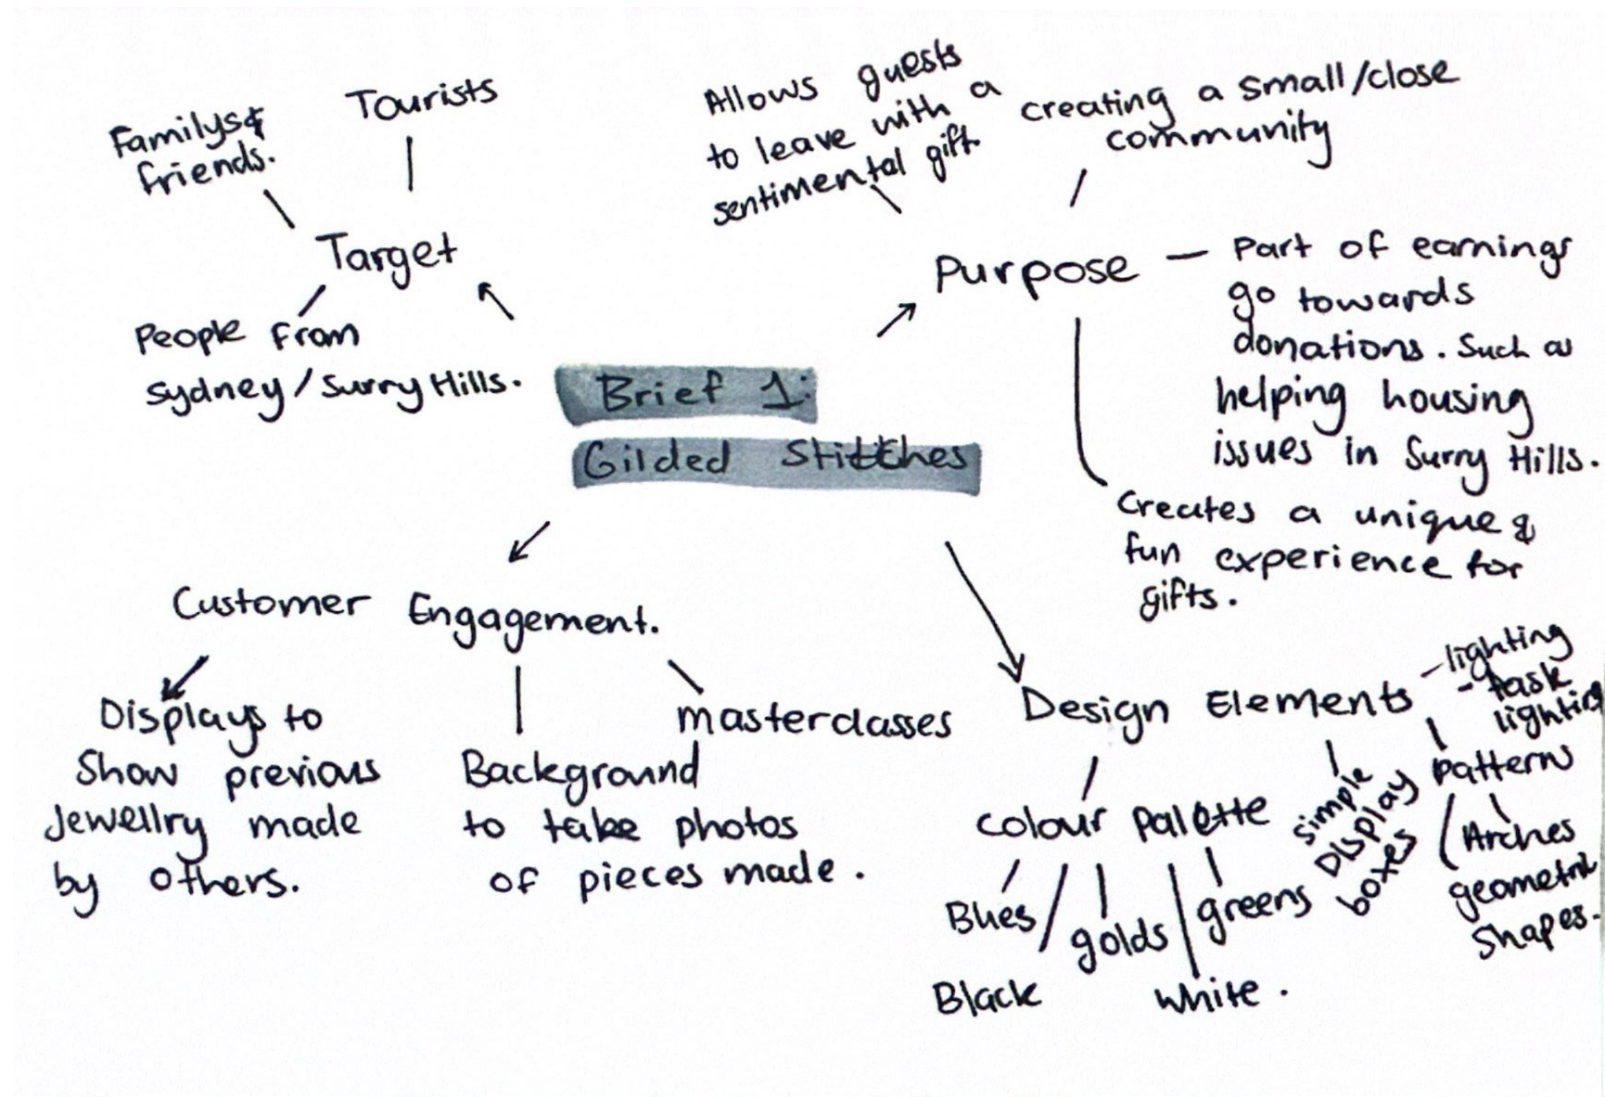 Brief 1:
Gilded Stitches
Target
Familys &
friends.
Tourists
People from
Sydney / Surry Hills.
Purpose
Allows guests
to leave with a
sentimental gift.
creating a small/close
community
Part of earnings
go towards
donations. Such as
helping housing
issues in Surry Hills.
Creates a unique &
fun experience for
gifts.
Customer Engagement.
Displays to
Show previous
Jewellry made
by others.
Background
to take photos
of pieces made.
masterclasses
Design Elements
colour palette
Blues
Black
golds
white.
greens
simple
Display
boxes
patterns
Arches
geometric
shapes.
- lighting
- task
lighting